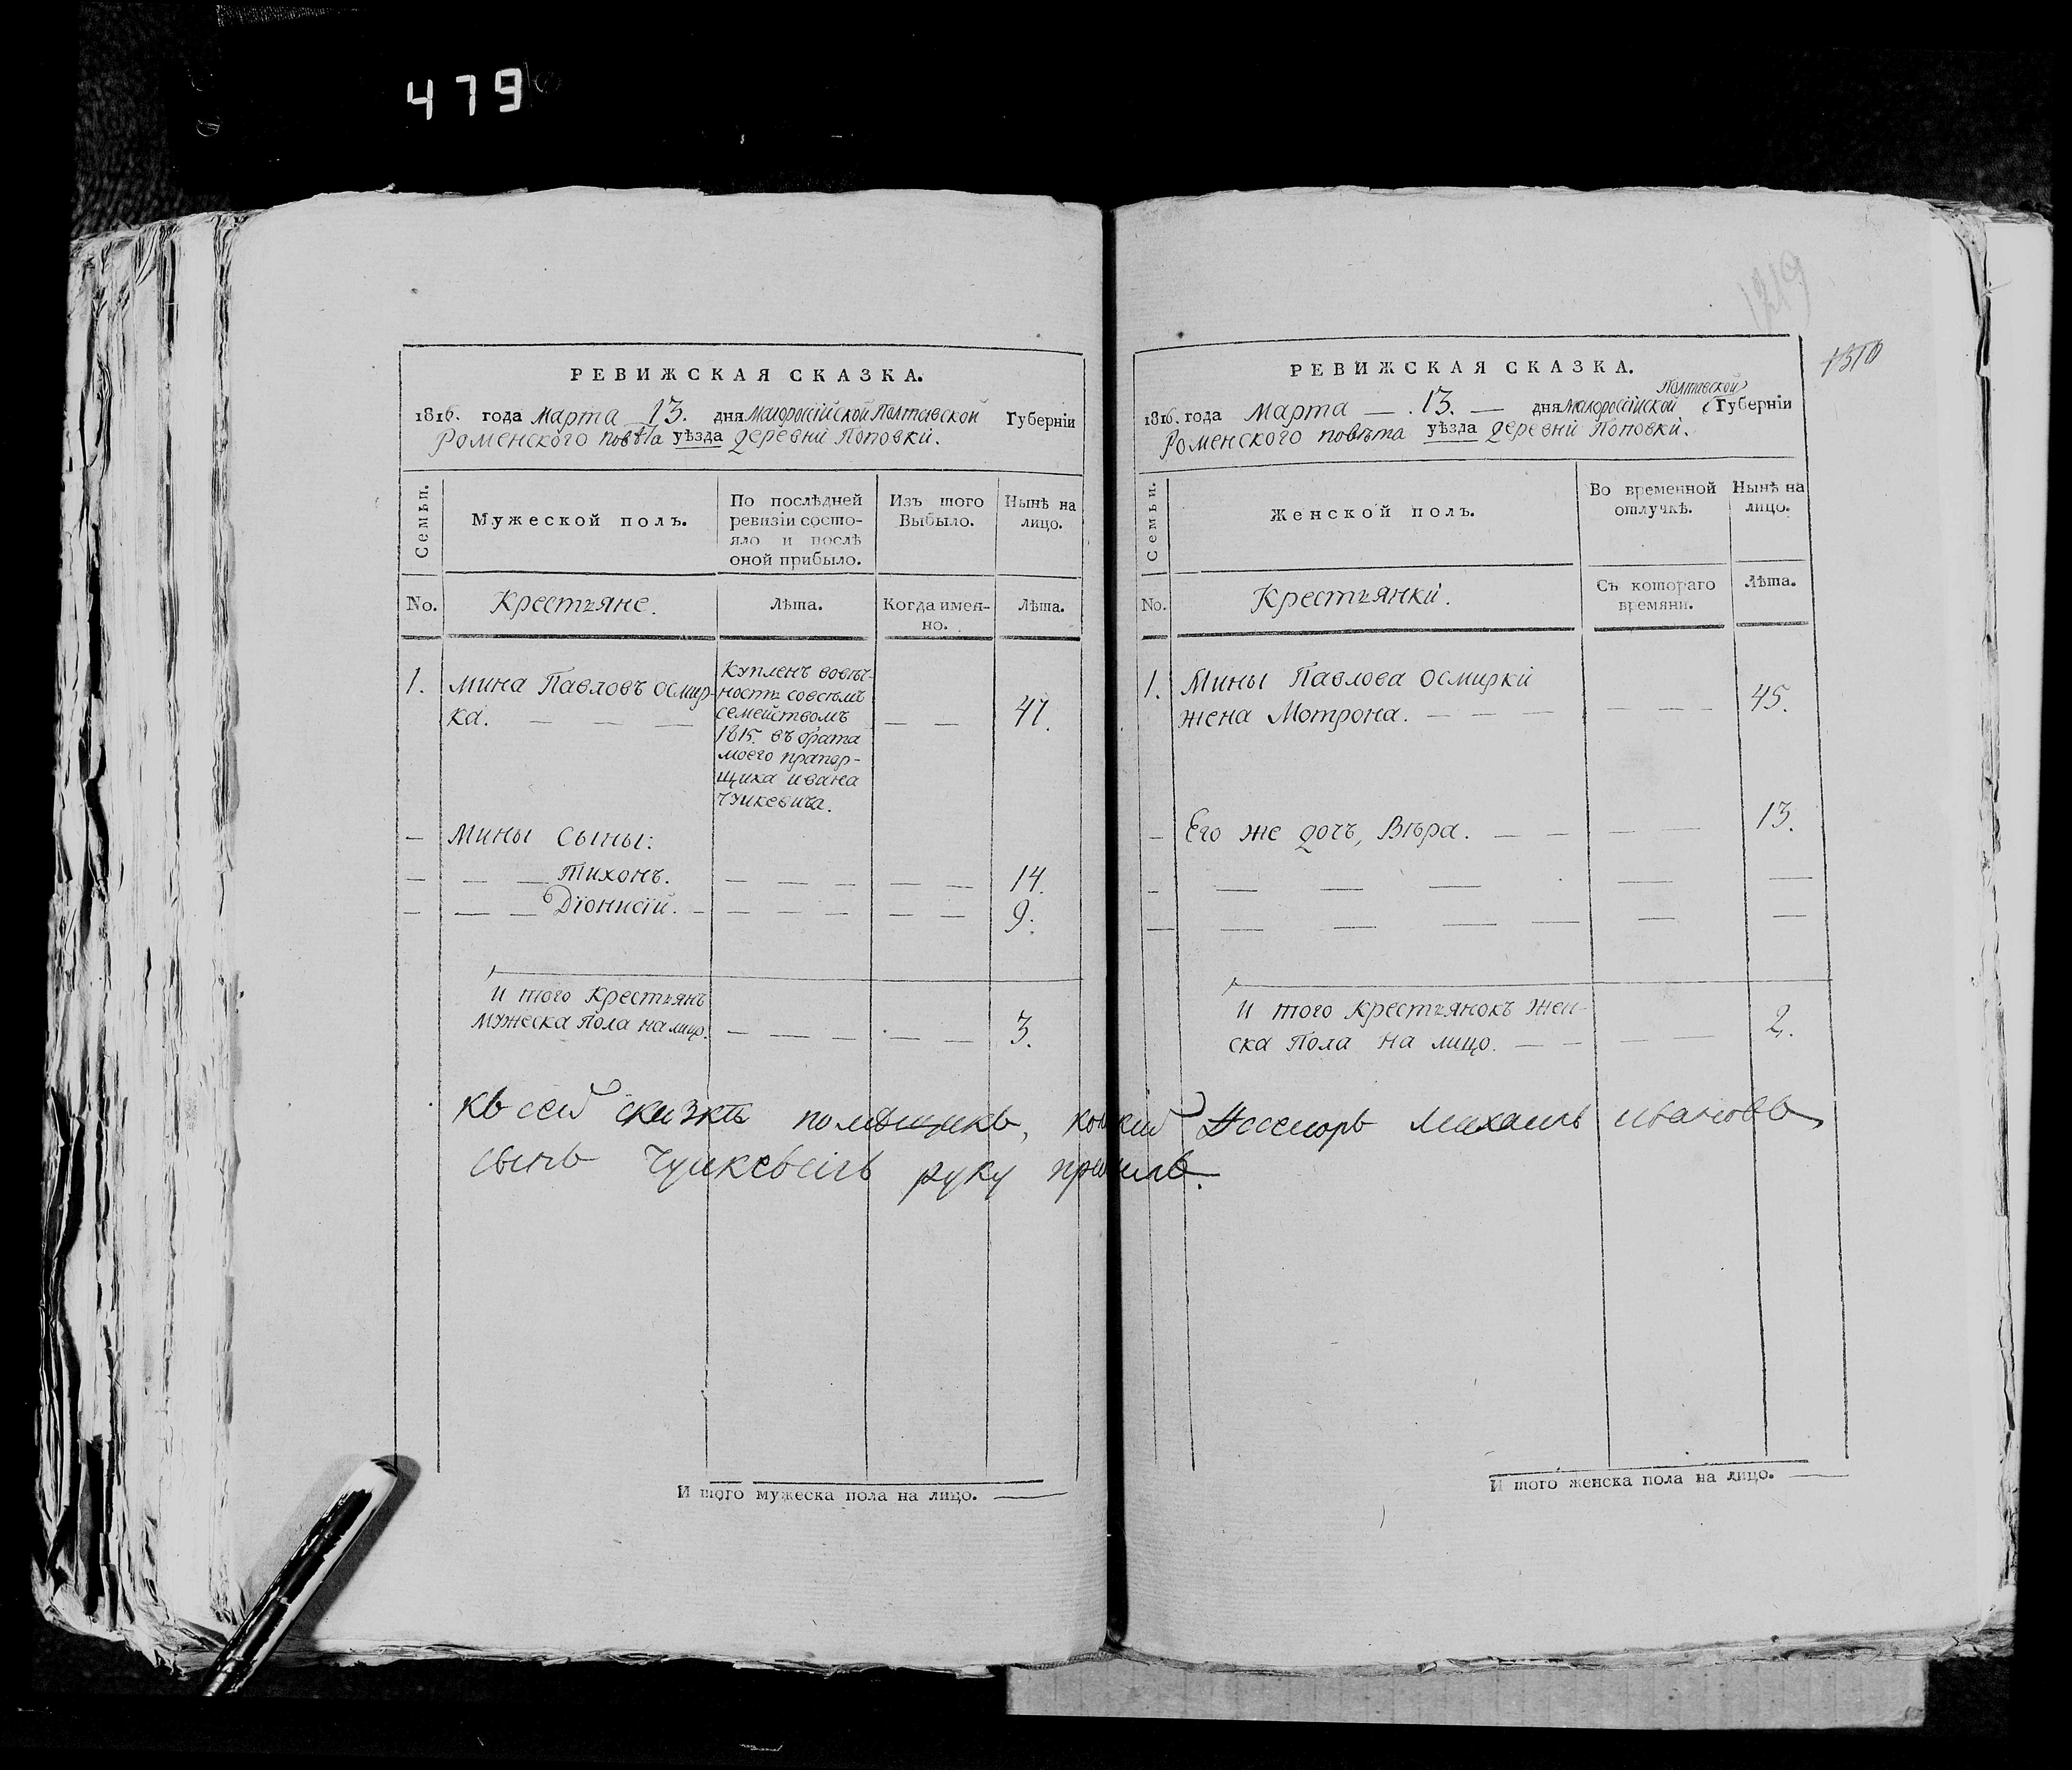 479
1319
1310
РЕВИЖСКАЯ СКАЗКА.
1816. года марта 13. дня малороссійской Полтавской Губерніи
Роменского повѣта уѣзда деревни Поповки.
Семьи.
Мужеской полъ.
По послѣдней
ревизіи состо-
яло и послѣ
оной прибыло.
Изъ того
Выбыло.
Нынѣ на
лицо.
No.
Крестьяне.
Лѣта.
Когда имен-
но.
Лѣта.
1. Мина Павловъ Осмир-
ка. — — —
Купленъ вовѣч-
ность совсемъ
семействомъ
1815. въ брата
моего прапор-
щика ивана
Чуйкевича.
— —
47.
— Мины сыны:
— — — Тихонъ. — — — — — 14.
— — — Діонисій. — — — — — — 9.
И того крестьянъ
мужеска пола на лицо. — — — — — 3.
РЕВИЖСКАЯ СКАЗКА.
Полтавской
1816. года Марта — 13. — дня малороссійской Губерніи
Роменского повѣта уѣзда деревни Поповки.
Семьи.
Женской полъ.
Во временной
отлучкѣ.
Нынѣ на
лицо.
No.
Крестьянки.
Съ котораго
времяни.
Лѣта.
1. Мины Павлова Осмирки
жена Мотрона. — — — — — — 45.
— Его же дочь, Вѣра. — — — — 13.
— — — — — —
— — — — — — —
И того крестьянокъ жен-
ска пола на лицо. — — — — 2.
Къ сей сказкѣ помѣщикъ, Ассесоръ Михаилъ Ивановъ
сынъ Чуйкевичъ руку
И того мужеска пола на лицо. —
И того женска пола на лицо. —